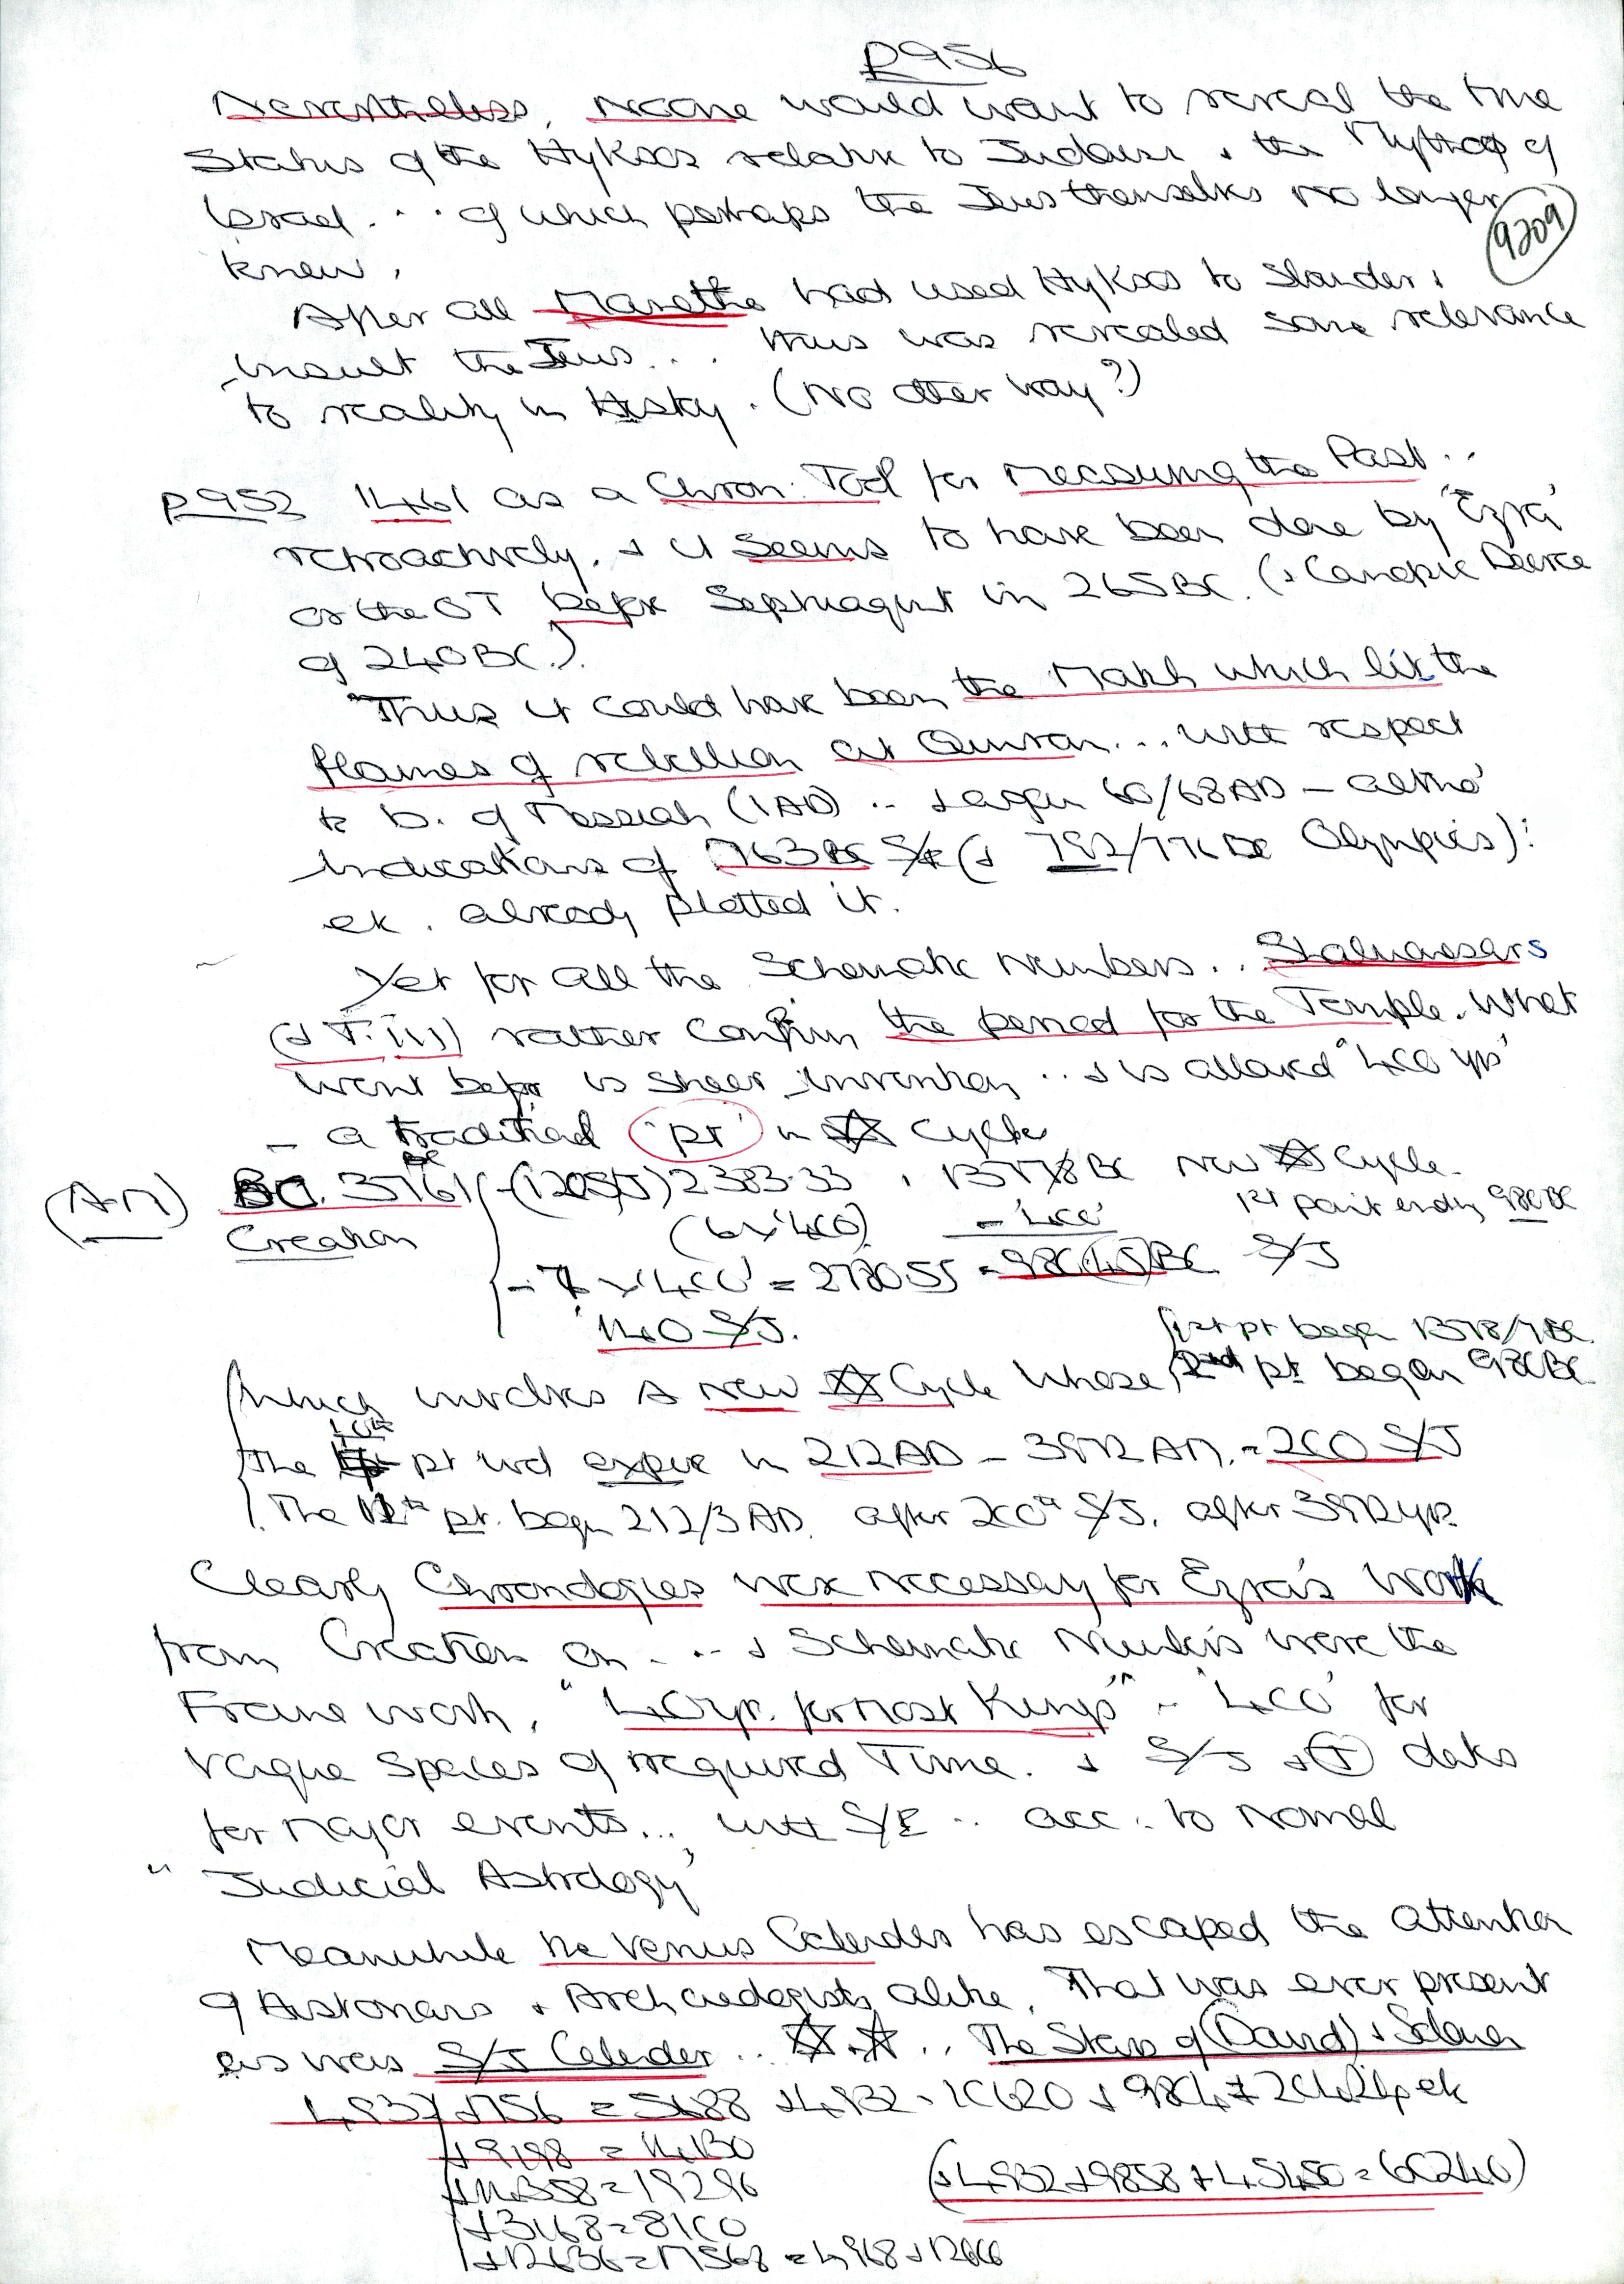 P956
Nevertheless, Noone would want to reveal the true
Status of the HyKsos relative to Judaism & the Mythos of
Israel... of which perhaps the Jews themselves no longer
knew.
9209
After all Manetho had used HyKsos to Slander &
insult the Jews... thus was revealed some relevance
to reality in History. (No other way?)
P952 1461 as a Chron. Tool for Measuring the Past..
retroactively. & it Seems to have been done by 'Ezra'
or the OT before Septuagint in 265BC. (& Canopic Decree
of 240BC.).
Thus it could have been the Match which lit the
flames of rebellion at Qumran... with respect
to b. of Messiah (1AD) .. & again 66/68AD - altho'
indications of 763BC S/E (& 792/776BC Olympics):
etc. already plotted it.
Yet for all the Schematic Numbers.. Shalmanesars
(& T. iii) rather Confirm the period for the Temple. What
went before is sheer invention .. & is allowed "400 yrs"
- a traditional 'pt' in ✡ Cycle
(AM) BC. 3761 (-(120S/J) 2383.33 , 1378 BC New ✡ Cycle.
Creation (6x'400') - '400' 1st part ends 980BC
- 7 x '400' = 2780.55 = 980(.45)BC S/J
140 S/J.
1st pt began 1378/7BC.
which involves a new ✡ Cycle whose 2nd pt began 980BC
The pt wd expire in 212AD - 3972 AM. = 200 S/J
The pt. began 212/3AD. after 200th S/J. after 3972yrs.
Clearly Chronologies were necessary for Ezra's Work
from Creation on ... & Schematic Numbers were the
Frame work, "40yr. for most Kings" .. '400' for
Vague Spaces of required Time. & S/J & (J) dates
for major events... with S/E .. acc. to Normal
"Judicial Astrology'
Meanwhile the Venus Calendar has escaped the attention
of Astronomers & Archaeologists alike. That was ever present
as was S/J Calendar.. ✡.☆.. The Stars of (David) & Solomon
4932 + 756 = 5688 + 4932 = 10620 + 9804 = 20424 etc
+ 9198 = 14130
+ 14358 = 19296 (+4932+9858+45450=60240)
+ 3168 = 8100
+ 12636 = 17568 = 4968 + 12600